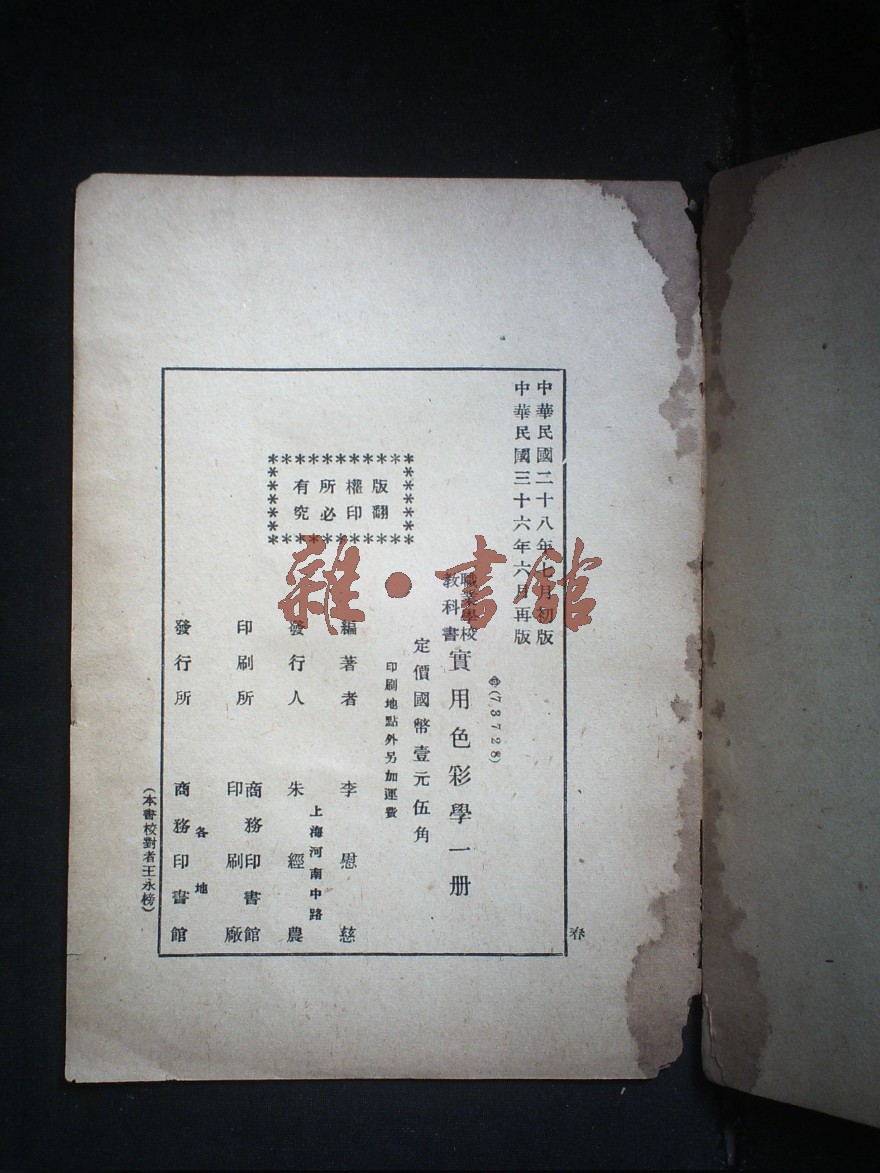 中華民國二十八年七月初版
中華民國三十六年六月再版
(73728)
職業學校
教科書
實用色彩學一册
定價國幣壹元伍角
印刷地點外另加運費
版權所有
翻印必究
編著者 李慰慈
上海河南中路
發行人 朱經農
印刷所 商務印書館
印刷廠
各地
發行所 商務印書館
(本書校對者王永榜)
雜·書館